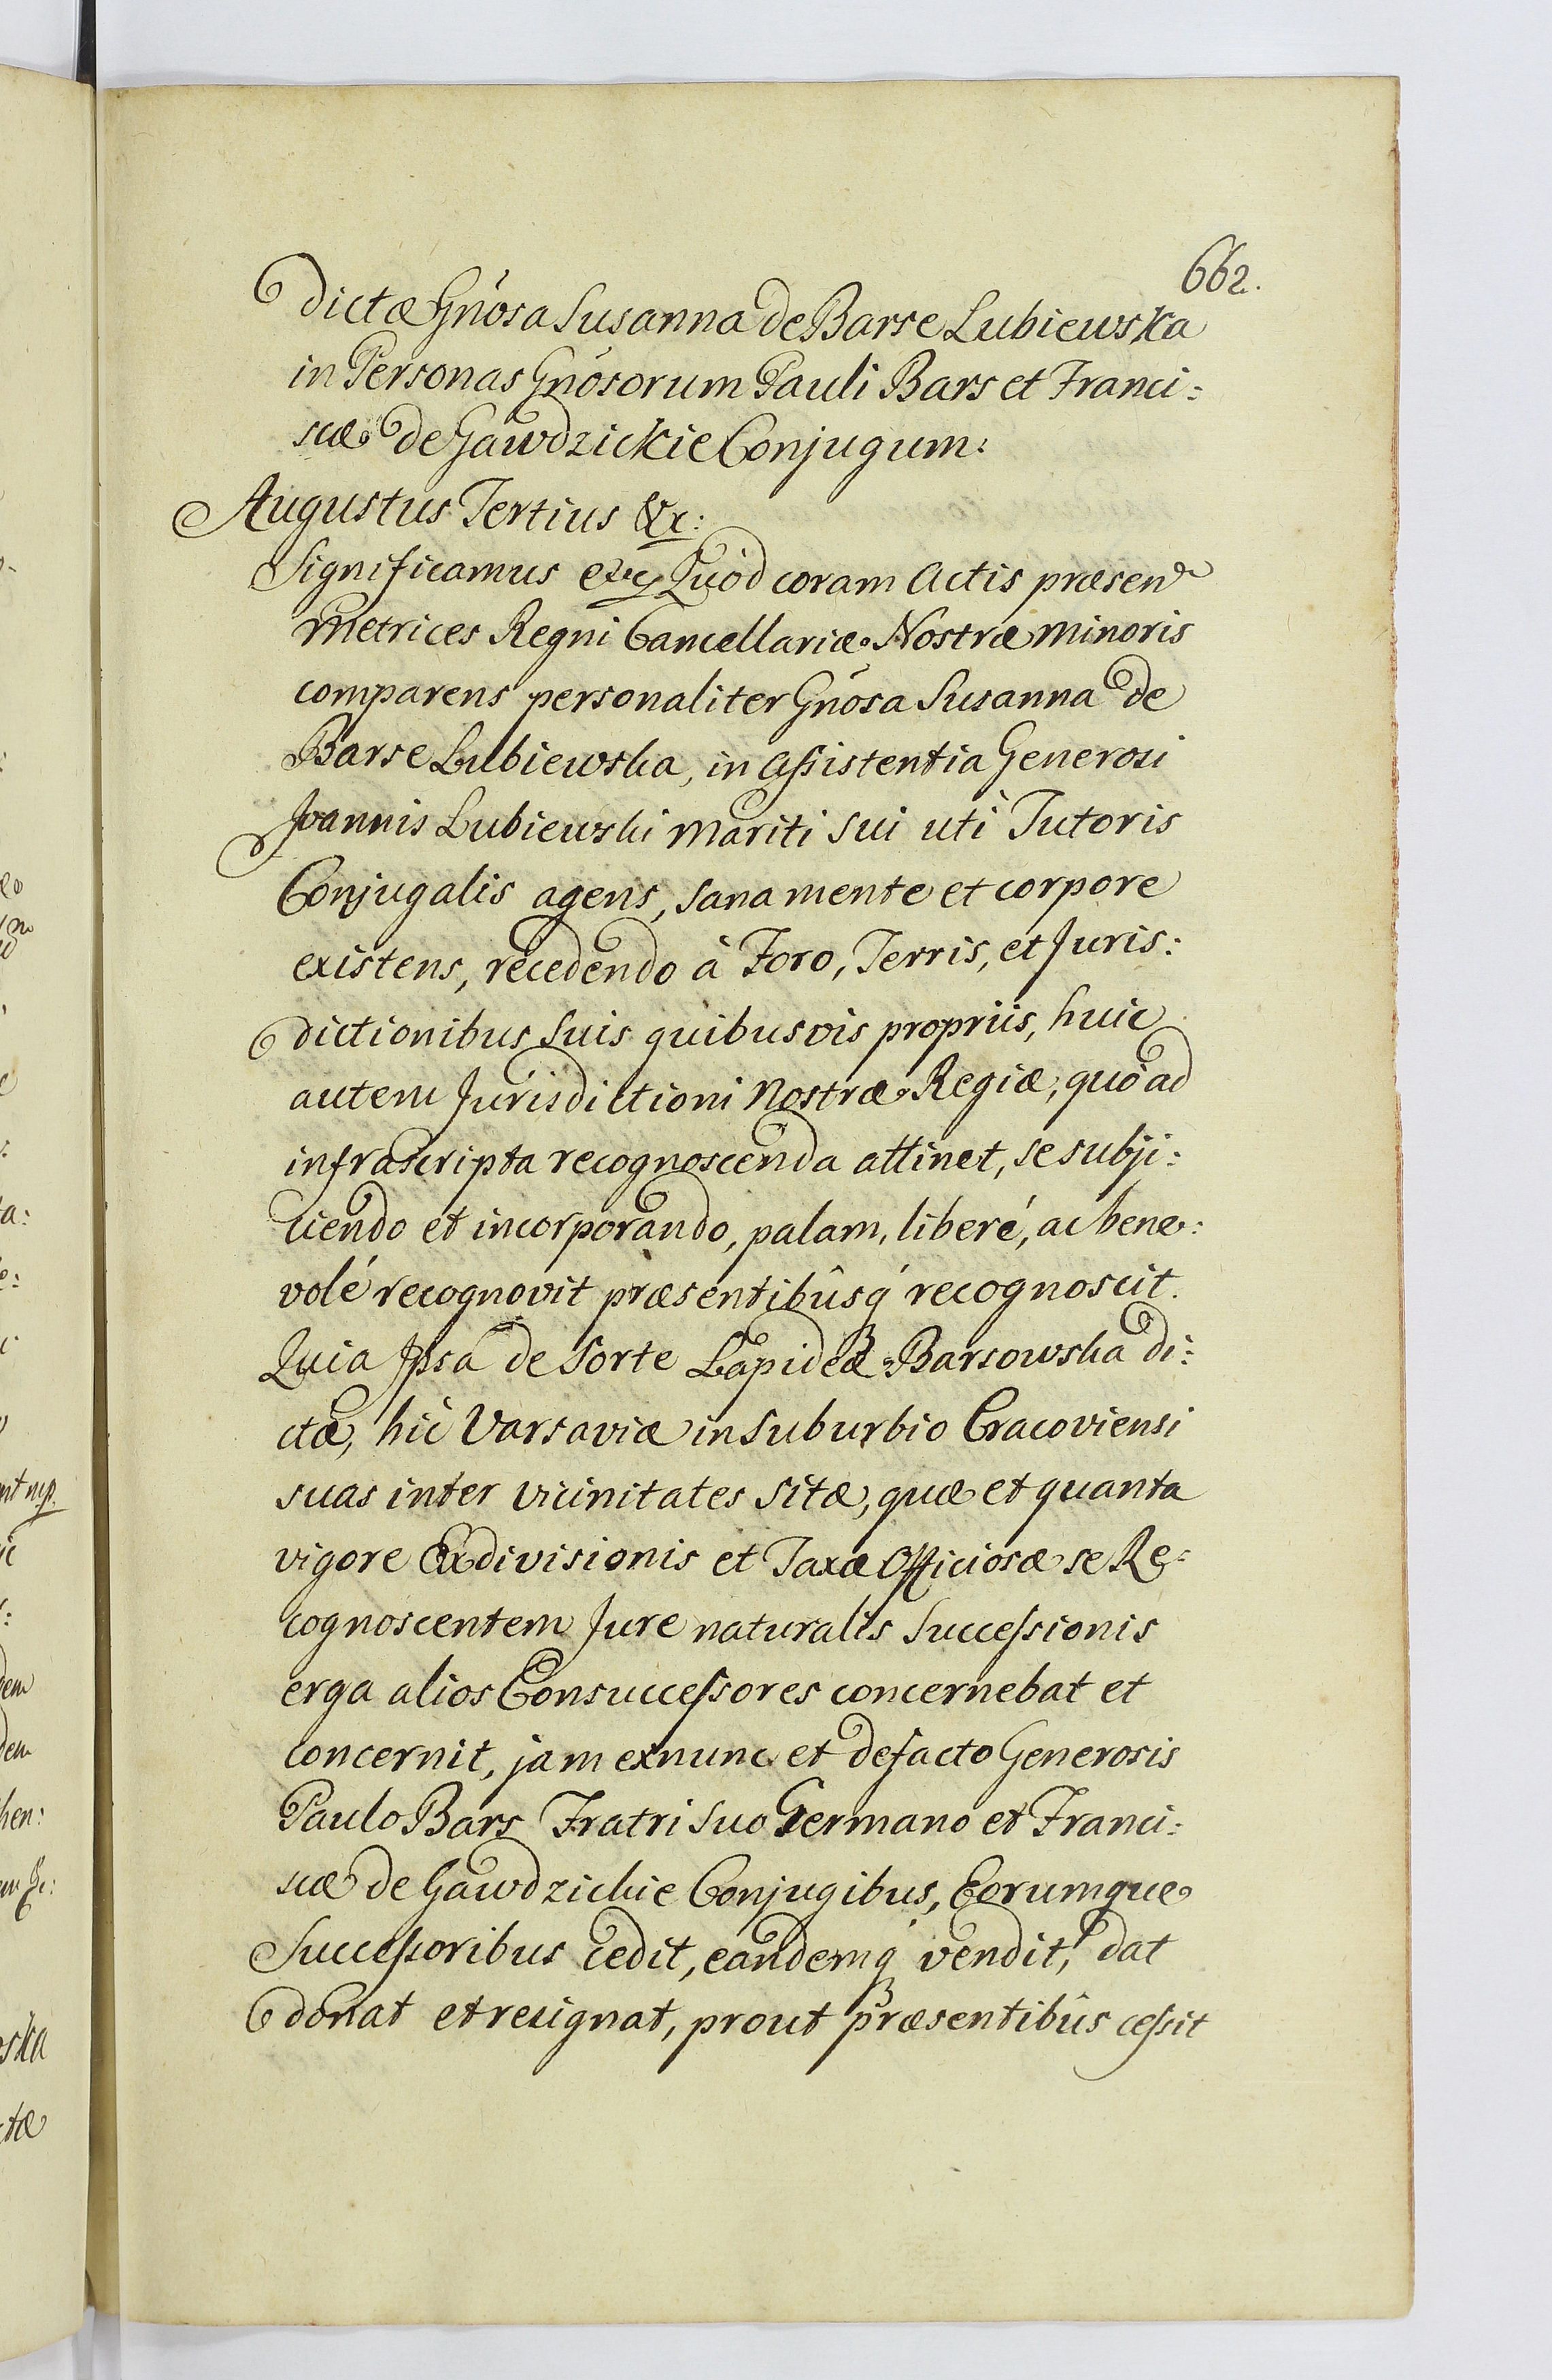 662.
dictæ Gnosa Susanna de Barse Lubiewska
in Personas Gnosorum Pauli Bars et Franci:
scæ de Gawdzickie Conjugum:
Augustus Tertius &c:
Significamus etc Quòd coram Actis præsen
Metrices Regni Cancellariæ Nostræ Minoris
comparens personaliter Gnosa Susanna de
Barse Lubiewska, in Assistentia Generosi
Joannis Lubiewski Mariti sui uti Tutoris
Conjugalis agens, sana mente et corpore
existens, recedendo à Foro, Terris, et Juris:
dictionibus suis quibusvis propriis, huic
autem Jurisdictioni Nostræ Regiæ, quò ad
infrascripta recognoscenda attinet, se subji:
ciendo et incorporando, palam, liberé, ac bene:
volé recognovit præsentibûsq́ recognoscit.
Quia Ipsa de Sorte Lapideæ Barsowska di:
ctæ, hic Varsaviæ in Suburbio Cracoviensi
suas inter vicinitates sitæ, quæ et quanta
vigore Exdivisionis et Taxæ Officiosæ se Re:
cognoscentem Jure naturalis Successionis
erga alios Consuccessores concernebat et
concernit, jam exnunc et defacto Generosis
Paulo Bars Fratri suo Germano et Franci:
scæ de Gawdzickie Conjugibus, Eorumque
Successoribus cedit, eandemq́ vendit, dat
donat et resignat, prout præsentibûs cessit